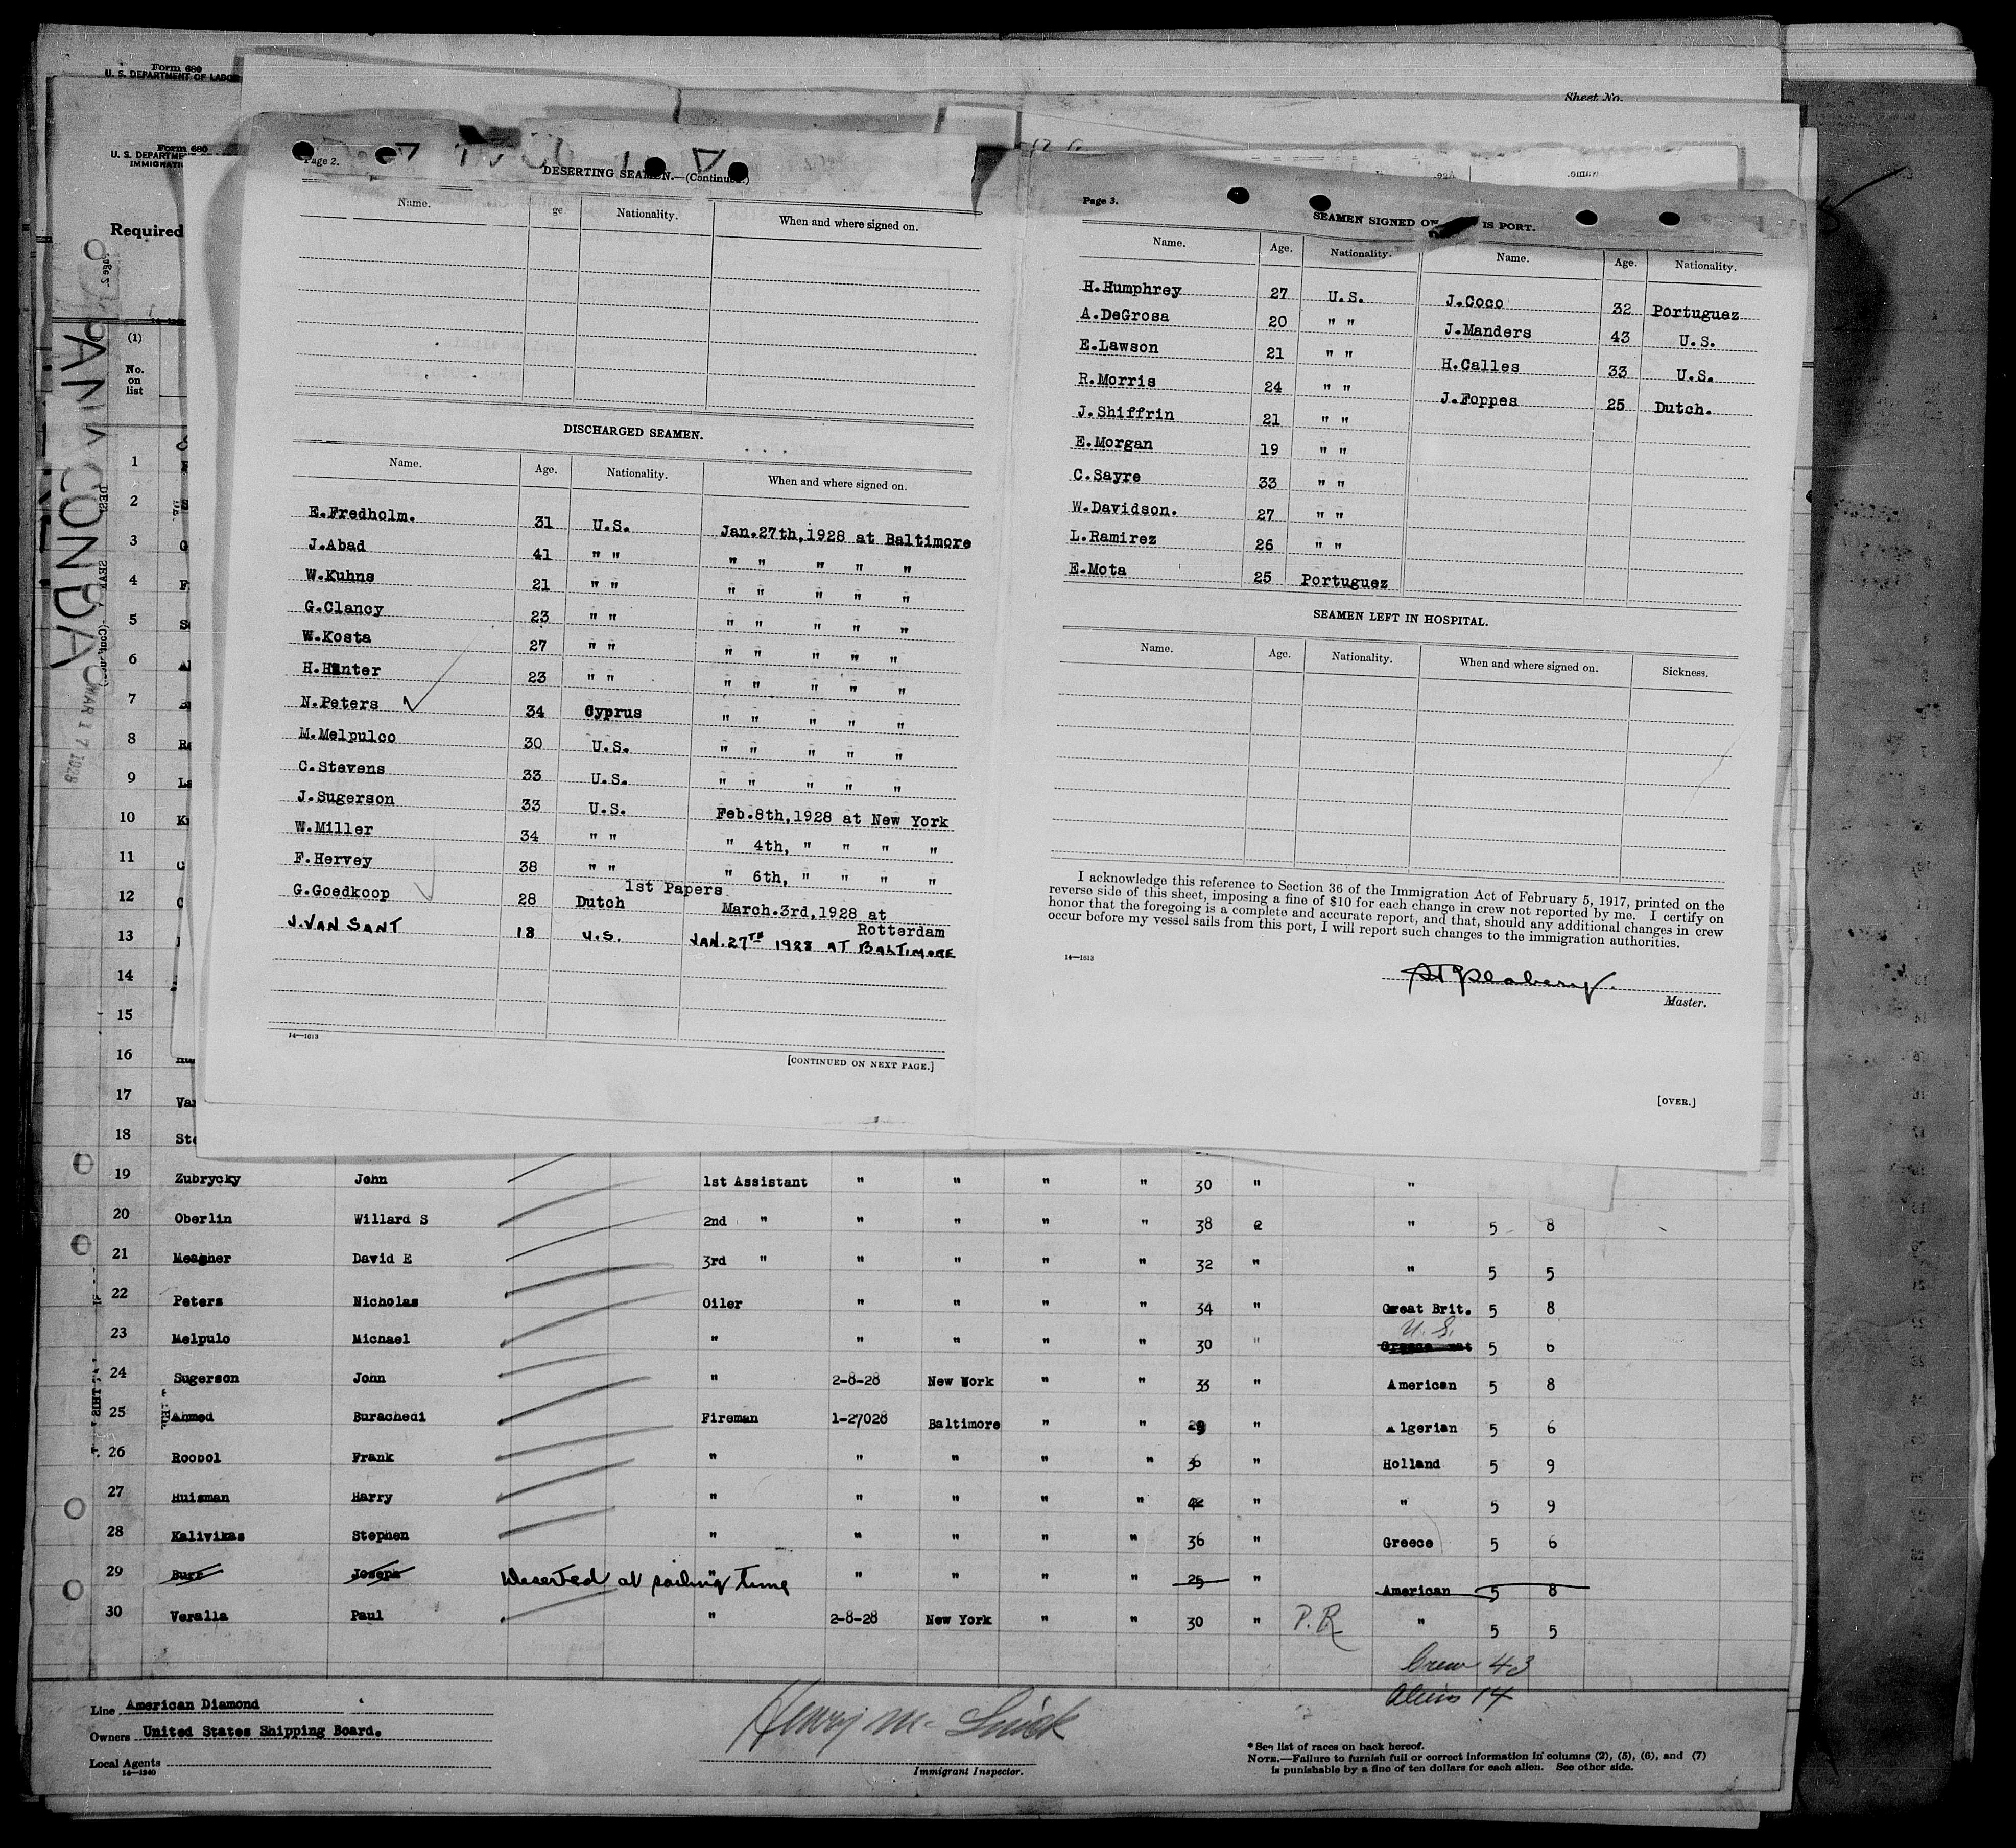 Form 680
U. S. DEPARTMENT OF LABOR
Sheet No.
Form 680
U. S. DEPARTMENT
IMMIGRATI
Required
Page 2.
ANACONDA
MAR 17 1928
(1)
No.
on
list
Page 2.
DESERTING SEAMEN.—(Continued.)
Name. ge Nationality. When and where signed on.
DISCHARGED SEAMEN.
Name. Age. Nationality. When and where signed on.
E.Fredholm. 31 U.S. Jan.27th,1928 at Baltimore
J.Abad 41 " " " " " " "
W.Kuhns 21 " " " " " " "
G.Clancy 23 " " " " " " "
W.Kosta 27 " " " " " " "
H.Hunter 23 " " " " " " "
N.Peters 34 Cyprus " " " " "
M.Melpulco 30 U.S. " " " " "
C.Stevens 33 U.S. " " " " "
J.Sugerson 33 U.S. Feb.8th,1928 at New York
W.Miller 34 " " " 4th, " " " "
F.Hervey 38 " " " 6th, " " " "
1st Papers
G.Goedkoop 28 Dutch March.3rd,1928 at
Rotterdam
J.VAN SANT 18 U.S. JAN.27TH 1928 AT BALTIMORE
14—1613
[CONTINUED ON NEXT PAGE.]
Page 3.
SEAMEN SIGNED O IS PORT.
Name. Age. Nationality. Name. Age. Nationality.
H.Humphrey 27 U.S. J.Coco 32 Portuguez
A.DeGrosa 20 " " J.Manders 43 U.S.
E.Lawson 21 " " H.Calles 33 U.S.
R.Morris 24 " " J.Foppes 25 Dutch.
J.Shiffrin 21 " "
E.Morgan 19 " "
C.Sayre 33 " "
W.Davidson. 27 " "
L.Ramirez 26 " "
E.Mota 25 Portuguez
SEAMEN LEFT IN HOSPITAL.
Name. Age. Nationality. When and where signed on. Sickness.
I acknowledge this reference to Section 36 of the Immigration Act of February 5, 1917, printed on the
reverse side of this sheet, imposing a fine of $10 for each change in crew not reported by me. I certify on
honor that the foregoing is a complete and accurate report, and that, should any additional changes in crew
occur before my vessel sails from this port, I will report such changes to the immigration authorities.
14—1613
Master.
[OVER.]
1
2
3
4
5
6
7
8
9
10
11
12
13
14
15
16
17 Va
18 Ste
19 Zubrycky John 1st Assistant " " " " 30 " "
20 Oberlin Willard S 2nd " " " " " 38 " 5 8
21 Meagher David E 3rd " " " " " 32 " " 5 5
22 Peters Nicholas Oiler " " " " 34 " Great Brit. 5 8
U.S.
23 Melpulo Michael " " " " " 30 " 5 6
24 Sugerson John " 2-8-28 New Work " " 33 " American 5 8
25 Ahmed Burachedi Fireman 1-27028 Baltimore " " 29 " Algerian 5 6
26 Roobol Frank " " " " " 36 " Holland 5 9
27 Huisman Harry " " " " " 42 " " 5 9
28 Kalivikas Stephen " " " " " 36 " Greece 5 6
29 Burr Joseph Deserted at sailing time " " " " " 25 " American 5 8
30 Veralla Paul " 2-8-28 New York " " 30 " P.R " 5 5
Crew 43
Aliens 14
Line American Diamond
Owners United States Shipping Board.
Local Agents
14—1240
Immigrant Inspector.
* See list of races on back hereof.
NOTE.—Failure to furnish full or correct information in columns (2), (5), (6), and (7)
is punishable by a fine of ten dollars for each alien. See other side.